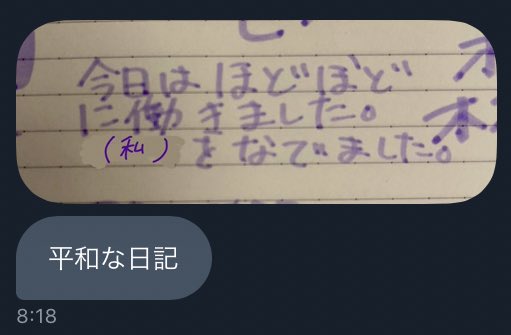 今日はほどほど
に働きました。
(私)をなでました。
平和な日記
8:18